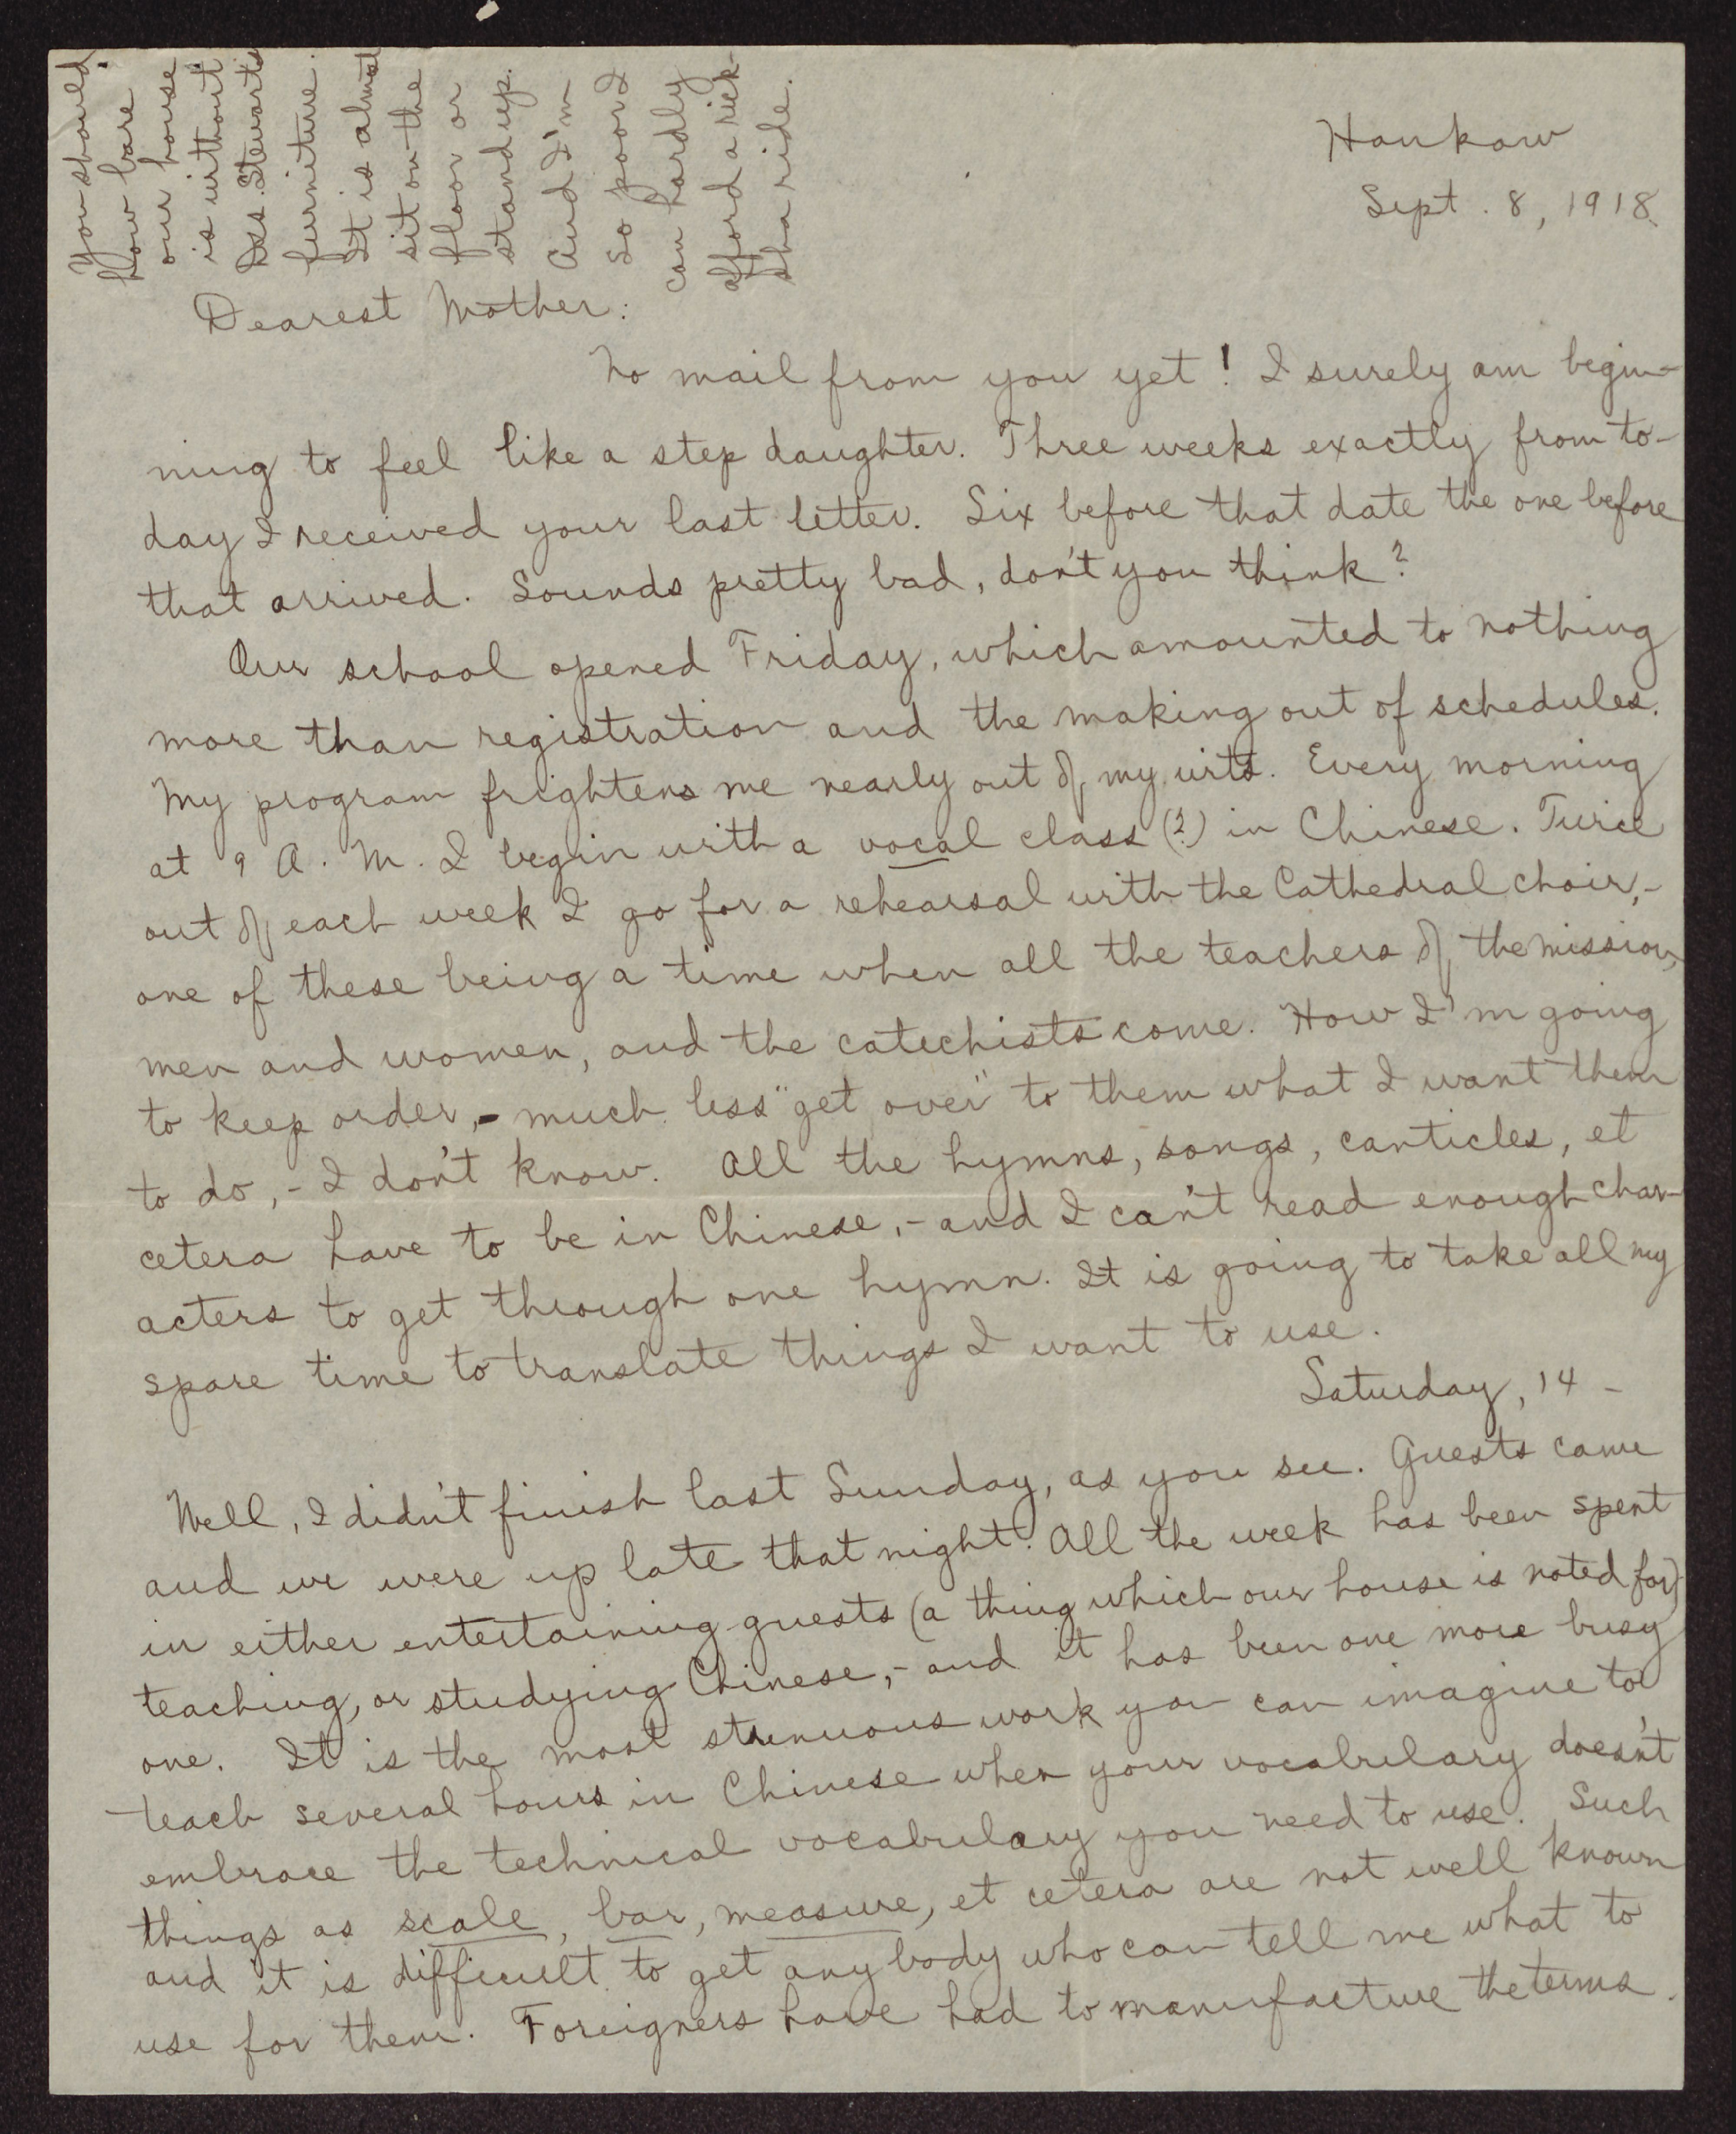 Hankow
Sept. 8, 1918.
You should
how bare
our house
is without
Dss. Stewart's
furniture.
It is almost
sit on the
floor or
stand up.
And I'm
so poor I
can hardly
afford a rick-
sha ride.
Dearest Mother:
No mail from you yet! I surely am begin-
ning to feel like a step daughter. Three weeks exactly from to-
day I received your last letter. Six before that date the one before
that arrived. Sounds pretty bad, don't you think?
Our school opened Friday, which amounted to nothing
more than registration and the making out of schedules.
My program frightens me nearly out of my wits. Every morning
at 9 A.M. I begin with a vocal class (?) in Chinese. Twice
out of each week I go for a rehearsal with the Cathedral choir,-
one of these being a time when all the teachers of the mission,
men and women, and the catechists come. How I'm going
to keep order,- much less "get over" to them what I want them
to do,- I don't know. All the hymns, songs, canticles, et
cetera have to be in Chinese,- and I can't read enough char-
acters to get through one hymn. It is going to take all my
spare time to translate things I want to use.
Saturday, 14 -
Well, I didn't finish last Sunday, as you see. Guests came
and we were up late that night. All the week has been spent
in either entertaining guests (a thing which our house is noted for)
teaching, or studying Chinese,- and it has been one more busy
one. It is the most strenuous work you can imagine to
teach several hours in Chinese when your vocabulary doesn't
embrace the technical vocabulary you need to use. Such
things as scale, bar, measure, et cetera are not well known
and it is difficult to get anybody who can tell me what to
use for them. Foreigners have had to manufacture the terms.